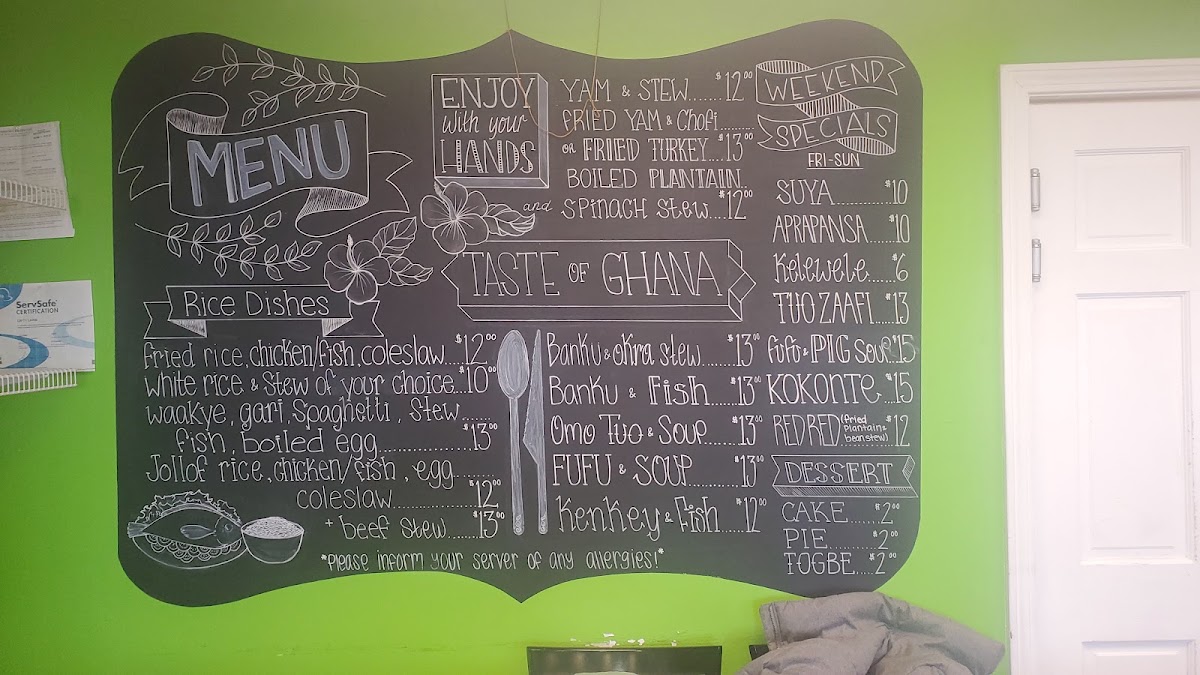 MENU
Rice Dishes
fried rice, chicken/fish, coleslaw...$12.00
White rice & Stew of your choice...$10.00
waakye, gari, Spaghetti, Stew......
fish, boiled egg..................$13.00
Jollof rice, chicken/fish, egg......
coleslaw............$12.00
+ beef Stew......$13.00
ENJOY
with your
HANDS
YAM & STEW.......$12.00
fRIED YAM & Chofi..........
OR FRIED TURKEY....$13.00
BOILED PLANTAIN...
and SPINACH STEW....$12.00
TASTE OF GHANA
BANKU & OKRA STEW....$13.00
BANKU & Fish....$13.00
Omo Tuo & Soup.....$13.00
FUFU & SOUP......$13.00
Kenkey & Fish...$12.00
WEEKEND
SPECIALS
FRI-SUN
SUYA..........$10
APRAPANSA......$10
Kelewele....$6
TUO ZAAFI...$13
fufu & PIG SOUP $15
KOKONTE..$15
RED RED (fried plantain & bean stew) $12
DESSERT
CAKE......$2.00
PIE.........$2.00
TOGBE....$2.00
*Please inform your server of any allergies!*
ServSafe®
CERTIFICATION